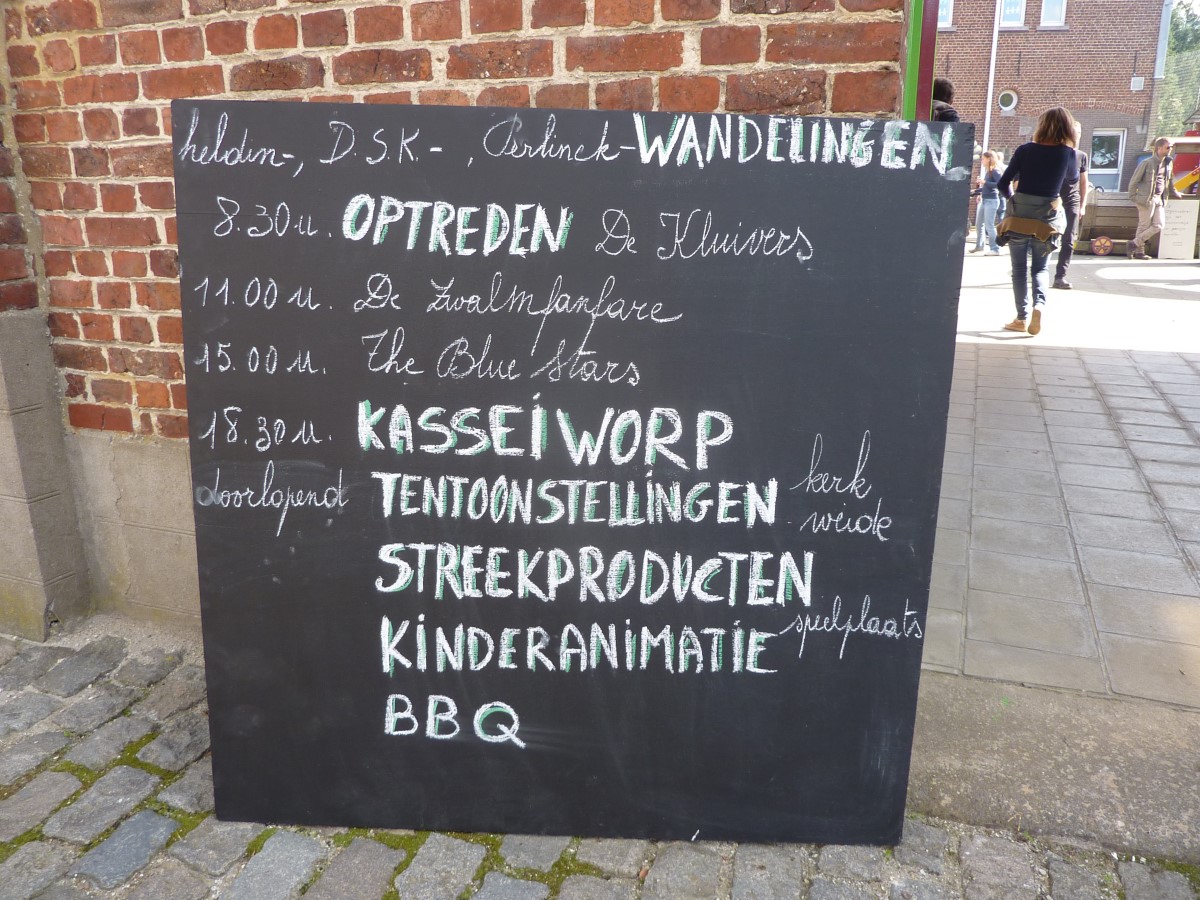 helden-, D.S.K.-, Perlinck-WANDELINGEN
8.30u. OPTREDEN De Kluivers
11.00u. De Zwalmfanfare
15.00u. The Blue Stars
18.30u. KASSEIWORP
doorlopend TENTOONSTELLINGEN kerk
weide
STREEKPRODUCTEN
KINDERANIMATIE speelplaats
BBQ